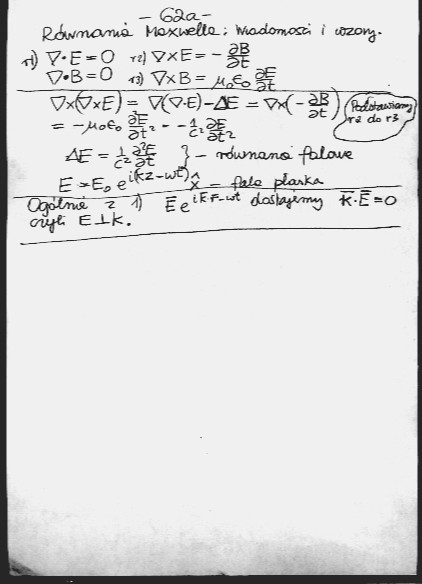 - 62a -
Równania Maxwella; wiadomości i wzory.
r1) ∇·E = 0 r2) ∇×E = -∂B/∂t
∇·B = 0 r3) ∇×B = μ₀ε₀ ∂E/∂t
∇×(∇×E) = ∇(∇·E) - ΔE = ∇×(-∂B/∂t) Podstawiamy r2 do r3
= -μ₀ε₀ ∂²E/∂t² = -1/c² ∂E/∂t²
ΔE = 1/c² ∂²E/∂t } - równanie falowe
E = E₀ e^i(kz-wt) x̂ - fala płaska
Ogólnie z 1) E̅ e^ik̅·r̅-wt dostajemy k̅·E̅ = 0
czyli E⊥k.